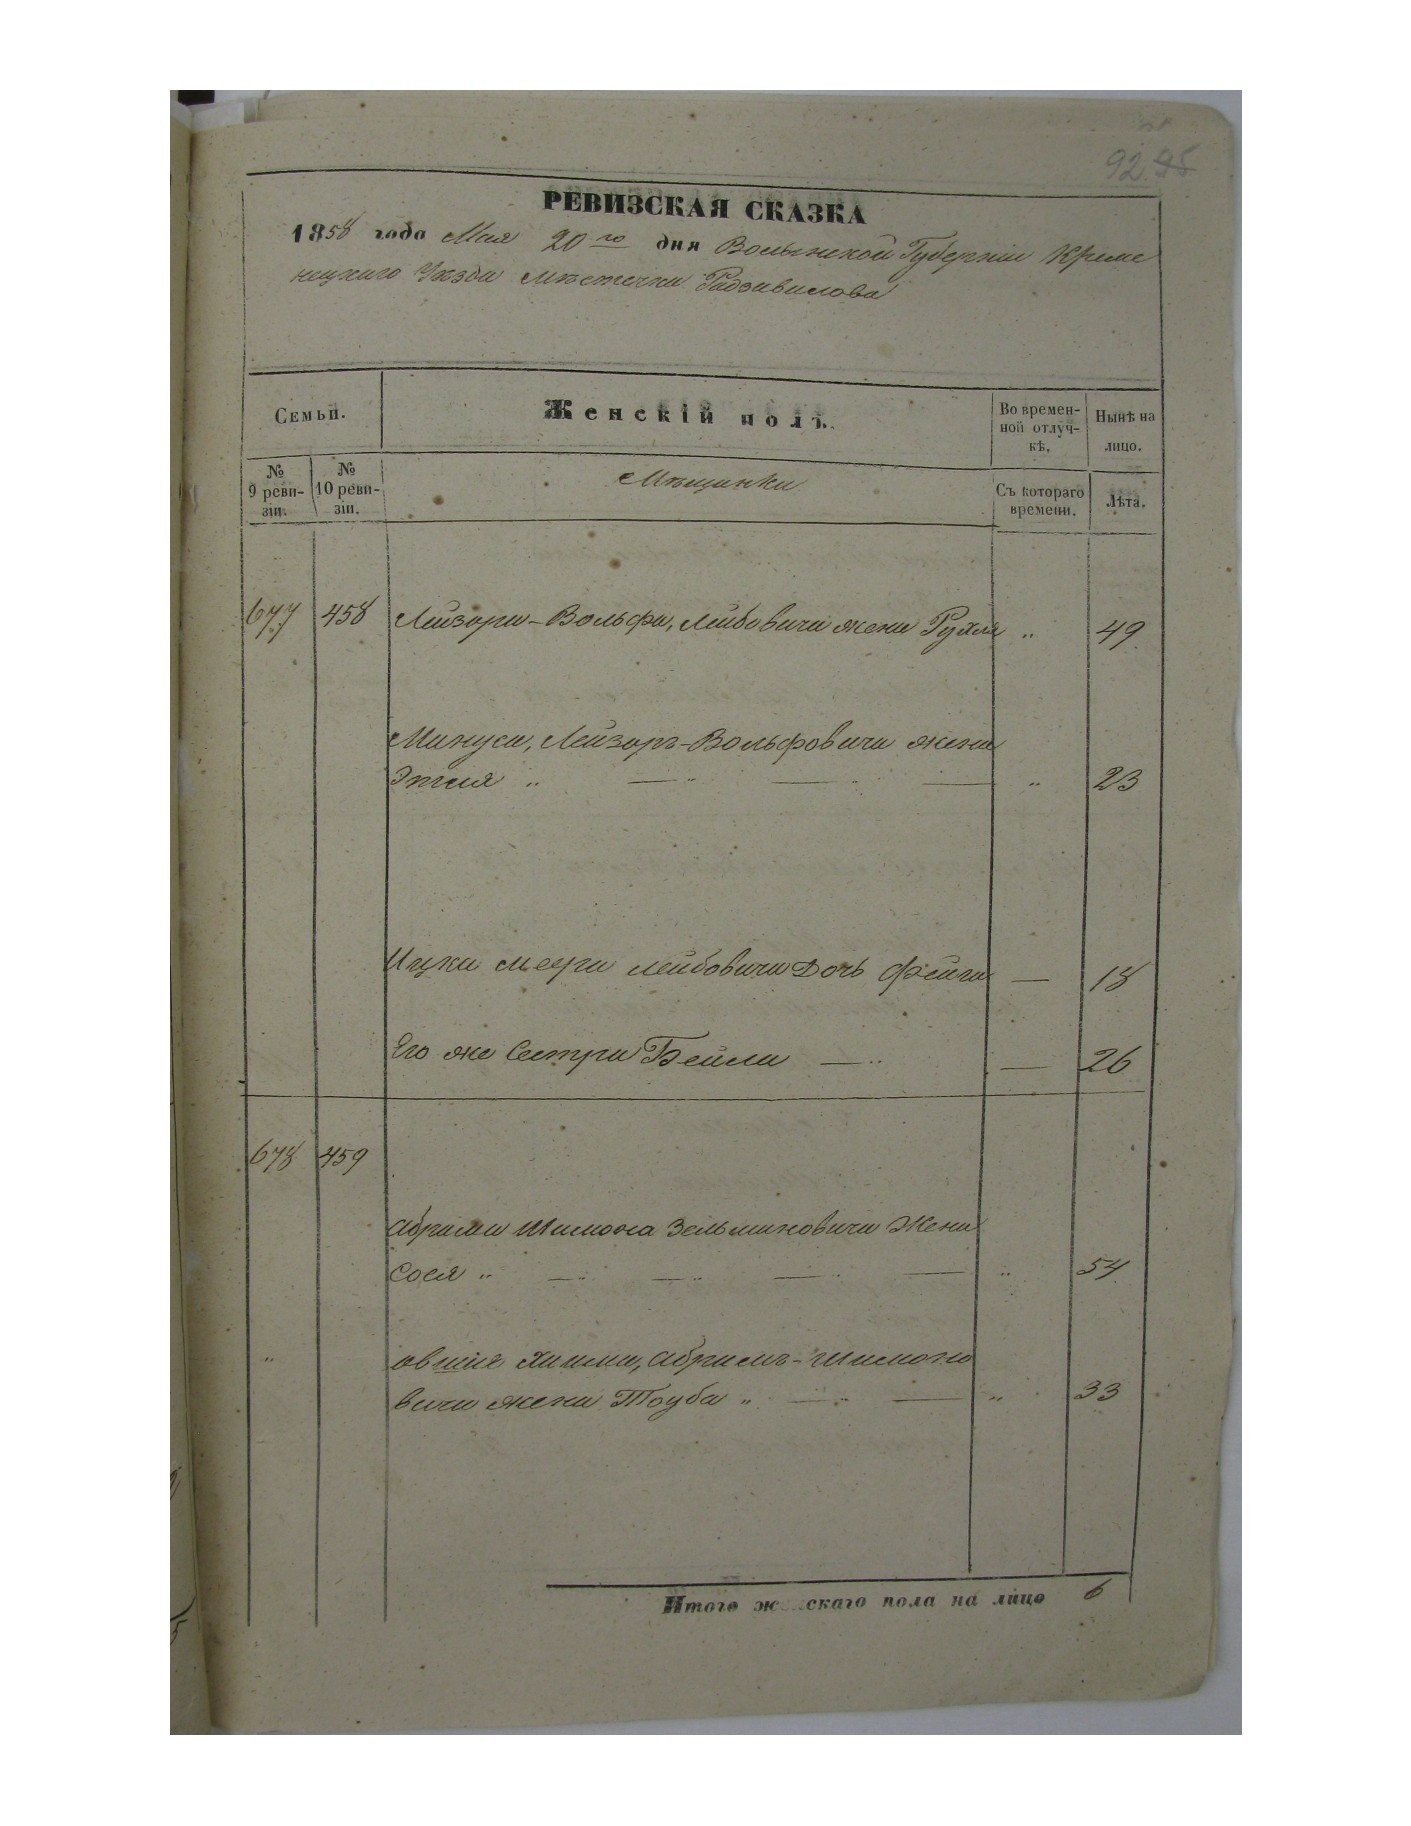 92. 95
РЕВИЗСКАЯ СКАЗКА
1858 года Мая 20го дня Волынской Губерніи Креме
нецкаго Уѣзда Мѣстечка Радзивилова
Семьи.
Женскій полъ.
Во времен-
ной отлуч-
кѣ.
Нынѣ на
лицо.
№
9 реви-
зіи.
№
10 реви-
зіи.
Мѣщанки
Съ котораго
времени.
Лѣта.
677 458 Лейзора-Вольфа, Лейбовича жена Рухля „ 49
Мануса, Лейзоръ-Вольфовича жена
Этля „ — „ — — „ 23
Ицка Меера Лейбовича Дочь Фейга — 18
Его же Сестра Бейла — „ — 26
678 459
Абрама Шимона Зельмановича Жена
Сося „ — „ — „ — „ — „ 54
„ Овшія Хаима, Абрамъ-Шимоно
вича жена Тоуба „ — „ — „ 33
Итого женскаго пола на лицо 6